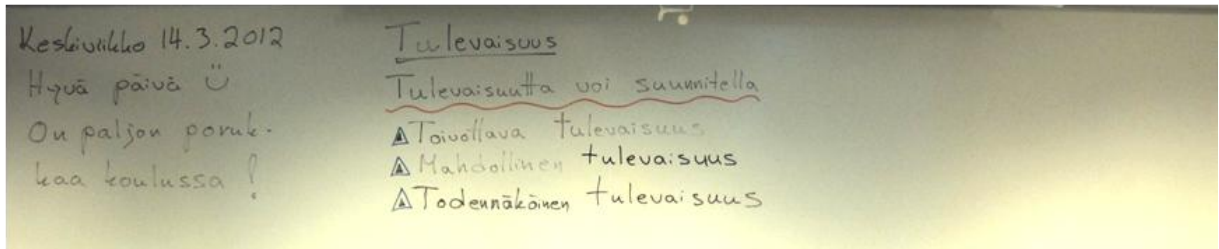 Keskiviikko 14.3.2012
Hyvä päivä ü
On paljon poruk-
kaa koulussa!
Tulevaisuus
Tulevaisuutta voi suunnitella
Toivottava tulevaisuus
Mahdollinen tulevaisuus
Todennäköinen tulevaisuus